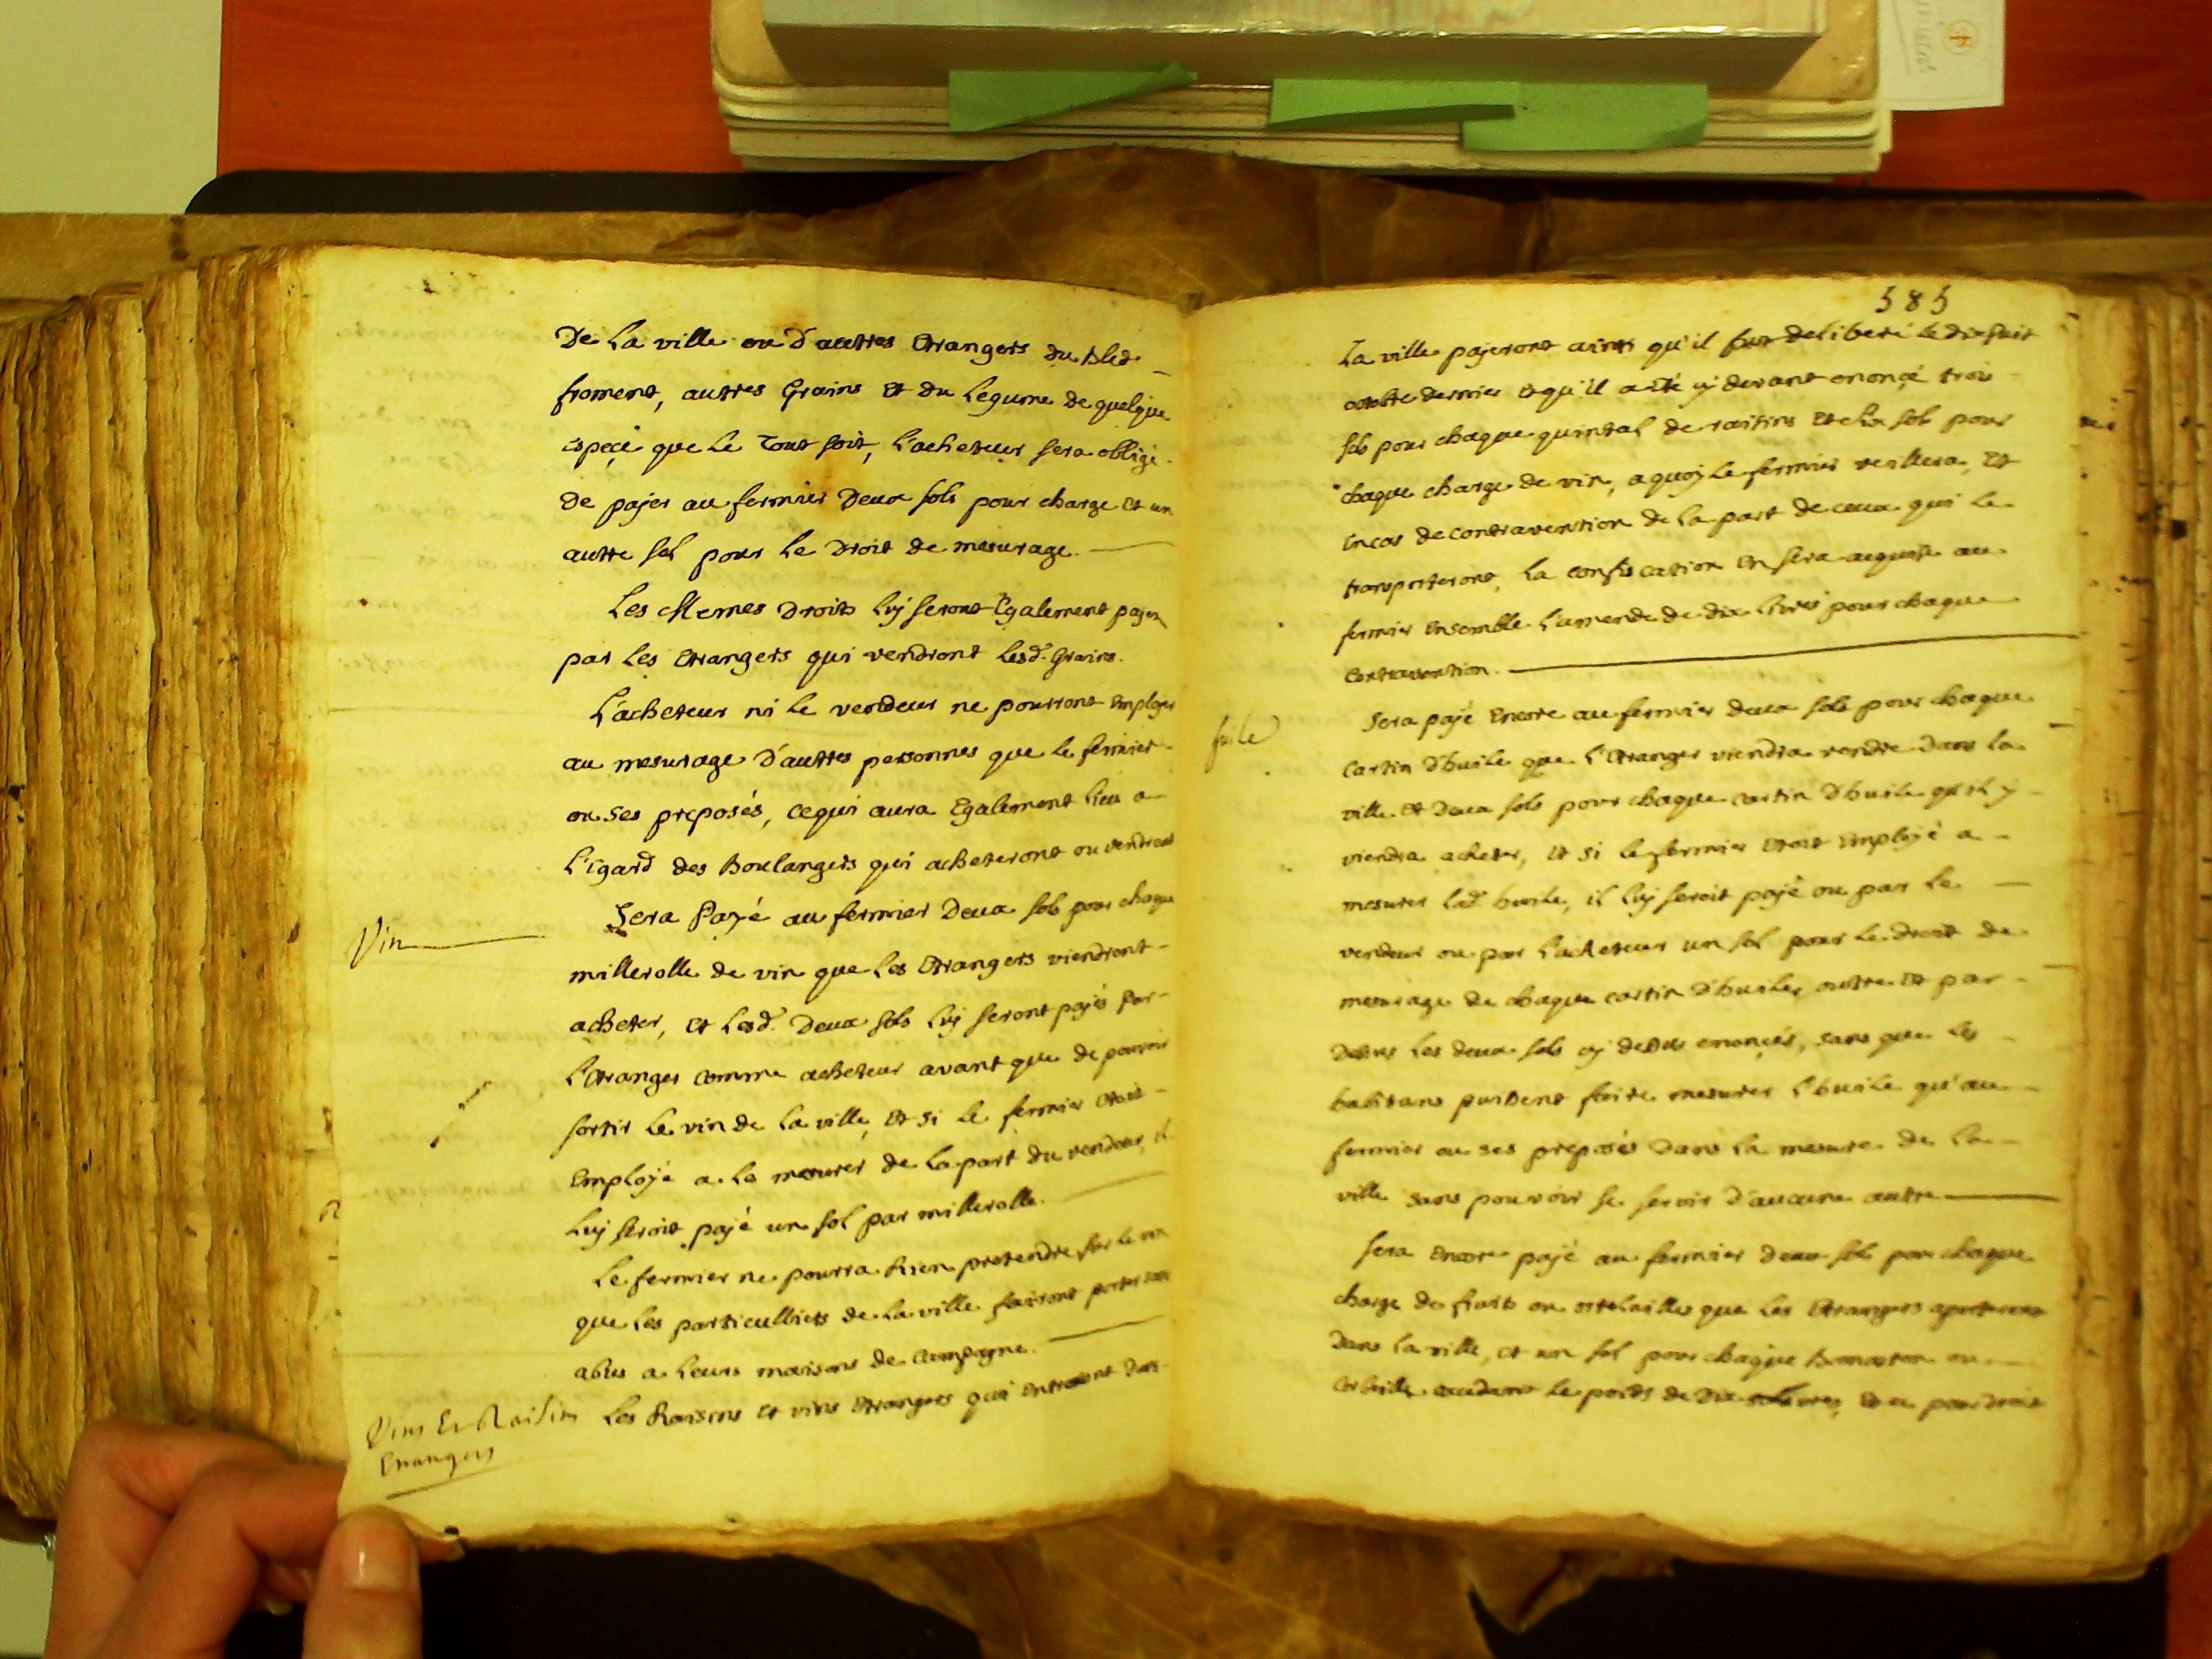 De La ville ou D'autres Etrangers du Bled
froment, autres Grains Et du Legume de quelque
Espece que Le Tout soit, L'acheteur sera obligé
de payer au fermier Deux sols pour charge et un
autre sol pour Le Droit de mesurage.
Les Memes Droits luy seront Egalement payes
par Les Etrangers qui vendront Lesd. Grains.
L'acheteur ni Le vendeur ne pourront Employer
au mesurage D'autres personnes que le fermier
ou ses preposés, cequi aura Egalement Lieu a
L'Egard des Boulangers qui acheteront ou vendront
Vin
Sera Payé au fermier Deux sols pour chaque
millerolle de vin que Les Etrangers viendront
acheter, et Lesd. Deux sols luy seront payés par
L'Etranger comme acheteur avant que de pouvoir
sortir Le vin de La ville, Et si le fermier etoit
Employé a Le mesurer de La part du vendeur, il
Luy seroit payé un sol par millerolle.
Le fermier ne pourra Rien pretendre sur le vin
que Les particulliers de La ville fairont porter sans
abus a Leurs maisons de Campagne.
Vins Et Raisins
Etrangers
Les Raisins et vins Etrangers qui entreront dans
585
La ville payeront ainsi qu'il fut deliberé le dixhuit
octobre dernier et qu'il a eté cy devant enoncé trois
sols pour chaque quintal de raisins et sol pour
chaque charge de vin, a quoy Le fermier veillera, et
Encas decontravention de La part de ceux qui Le
transporteront, La confiscation en sera acquise au
fermier Ensemble L'amende de dix Livres pour chaque
Contravention.
huile
Sera payé Encore au fermier deux sols pour chaque
Cartin D'huile que L'Etranger viendra vendre Dans La
ville et Deux sols pour chaque cartin D'huile qu'il y
viendra acheter, et si le fermier etoit Employé a
mesurer Lad. huile, il luy seroit payé ou par Le
vendeur ou par L'acheteur un sol pour Le Droit de
mesurage de chaque cartin D'huile, outre et par
Dessus Les deux sols cy dessus enoncés, sans que Les
habitans puissent faire mesurer L'huile qu'au
fermier ou ses preposés Dans La mesure de La
ville sans pouvoir se servir D'aucune autre
Sera Encore payé au fermier deux sols pour chaque
charge de fruits ou ortolailles que Les Etrangers aporteront
Dans la ville, et un sol pour chaque ou
Corbeille le poids de Dix pour droit